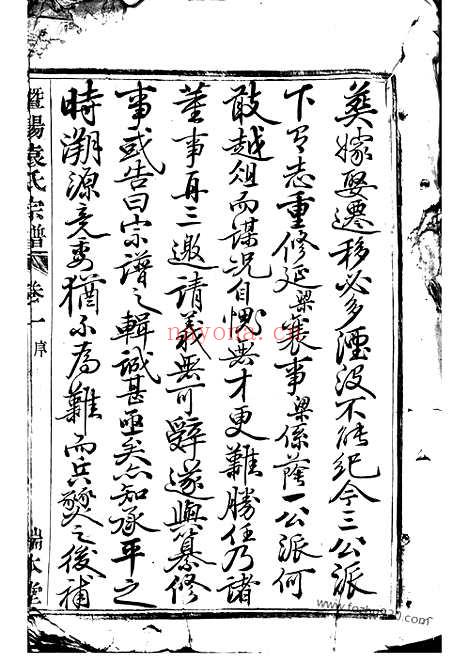 葬嫁娶遷移必多湮没不能紀今三公派
下有志重修延梁襄事梁係蔭一公派何
敢越俎而謀况自愧無才更難勝任乃諸
董事再三邀請義無可辭遂與纂修
事或告曰宗譜之輯誠甚亟矣然承平之
時溯源竟委猶不為難而兵燹之後補
暨陽袁氏宗譜 卷一 序
nayona.cn
www.fozhu920.com